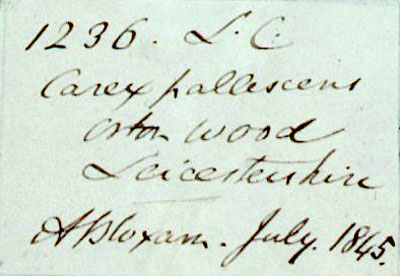 1236. L. C.
Carex pallescens
Orton Wood
Leicestershire
A Bloxam. July. 1845.